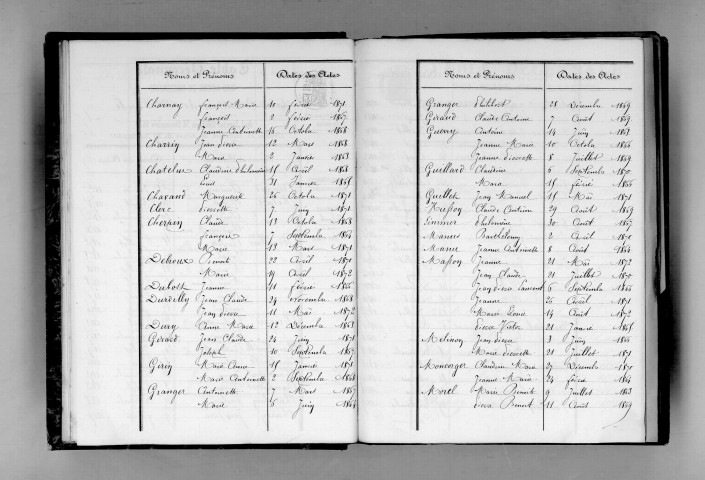 Noms et Prénoms Dates des Actes
Charnay François Marie 10 Février 1871
François 2 Février 1867
Jeanne Antoinette 16 Octobre 1868
Charrin Jean Pierre 12 Mars 1868
Marie 2 Janvier 1863
Chatelus Claudine Philomène 15 Avril 1868
Louis 31 Janvier 1865
Chavand Marguerite 26 Octobre 1871
Clerc Pierrette 7 Juin 1871
Cherpin Claude 13 Octobre 1868
François 7 Septembre 1864
Marie 13 Mars 1871
Delroux Benoit 22 Avril 1871
Marie 19 Avril 1872
Dubost Jeanne 11 Février 1866
Durdilly Jean Claude 24 Novembre 1868
Jean Pierre 11 Mai 1872
Dury Anne Marie 12 Décembre 1863
Gérard Jean Claude 24 Juin 1871
Joseph 10 Septembre 1867
Girin Marie Anne 15 Janvier 1871
Marie Antoinette 2 Septembre 1868
Granger Antoinette 7 Mars 1867
Marie 5 Juin 1864
Noms et Prénoms Dates des Actes
Granger Philibert 28 Décembre 1869
Girard Claude Antoine 7 Août 1869
Guerry Antoine 14 Juin 1863
Jeanne Marie 10 Octobre 1866
Jeanne Pierrette 8 Juillet 1869
Guillard Claudine 6 Septembre 1870
Marie 15 Février 1866
Guillot Jean Manuel 15 Mai 1871
Claude Antoine 29 Août 1869
Philomène 30 Août 1867
Manus Barthélemy 2 Avril 1871
Jeanne Antoinette 8 Août 1864
Masson Jeanne 21 Mai 1872
Jean Claude 21 Juillet 1870
Jean Pierre Laurent 6 Septembre 1866
Jeanne 26 Avril 1871
Marie Louise 14 Août 1872
Pierre Victor 21 Janvier 1865
Melinon Jean Pierre 3 Juin 1866
Marie Pierrette 21 Juillet 1871
Moncorger Claudine Marie 27 Décembre 1870
Jeanne Marie 24 Février 1864
Morel Marie Benoite 9 Juillet 1863
Pierre Benoit 11 Août 1869